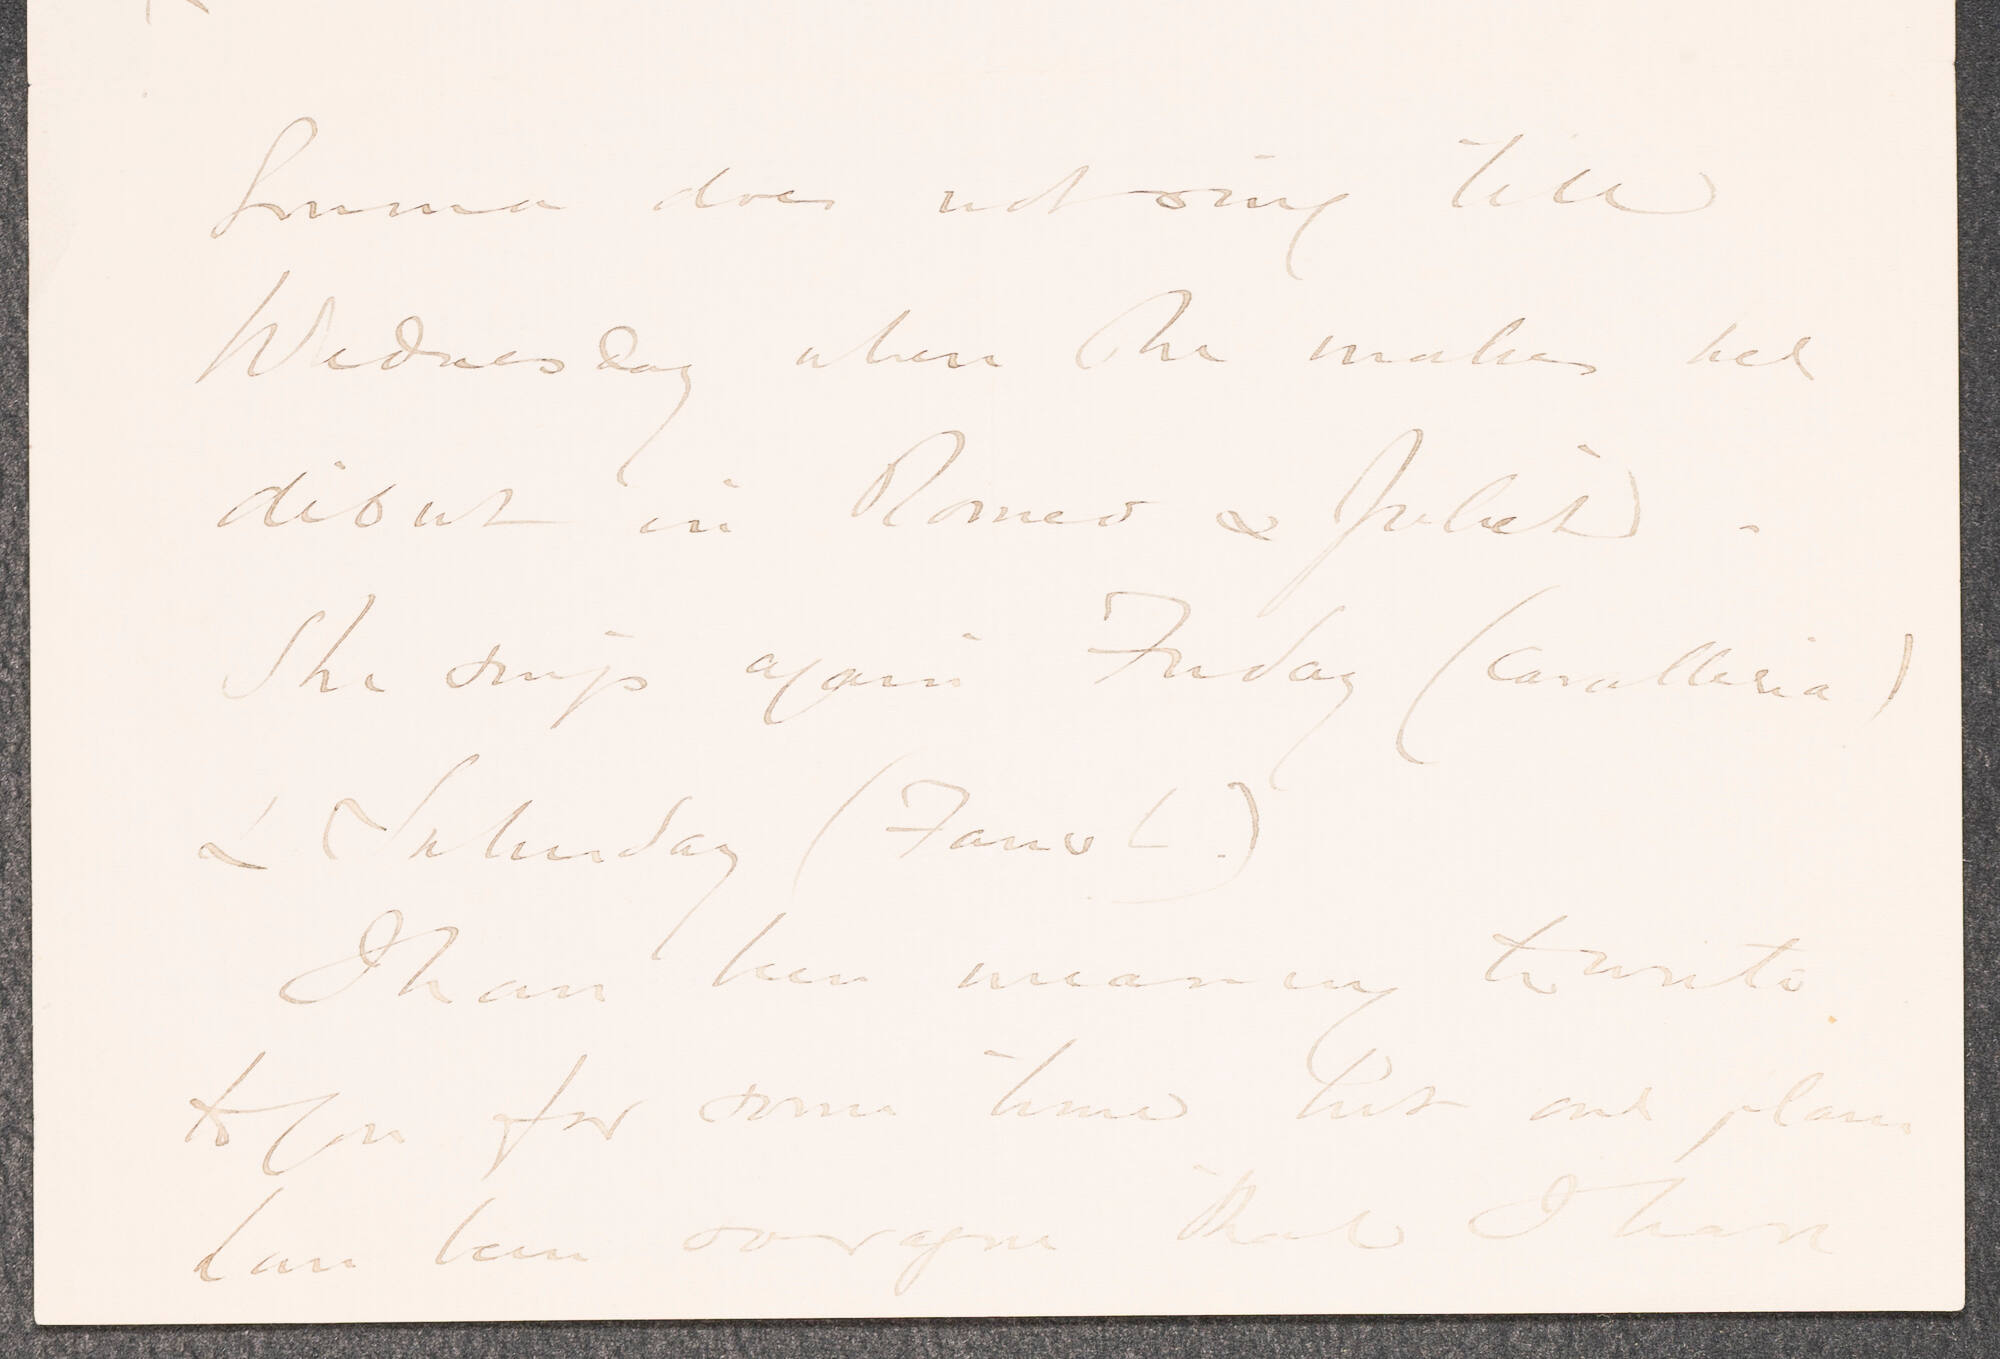 Emma does not sing till
Wednesday when she makes her
debut in Romeo & Juliet.
She sings again Friday (Cavalleria)
& Saturday (Faust.)
I have been meaning to write
to you for some time but our plans
have been so vague that I have